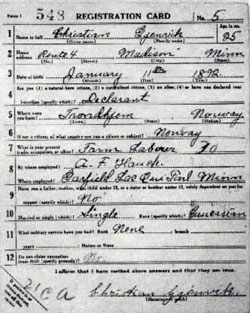 Form 1 548 REGISTRATION CARD No. 5
1 Name in full Christian Gjenvik 25
2 Home address Route 4 Madison Minn
3 Date of birth January 11th 1892
4 Are you (1) a natural-born citizen, (2) a naturalized citizen, (3) an alien, (4) or have you declared your
intention (specify which)? Declarant
5 Where were you born? Trondhjem Norway
6 If not a citizen, of what country are you a citizen or subject? Norway
7 What is your present trade, occupation, or office? Farm Labour
8 By whom employed? A. F.
Where employed? Garfield Lac Qui Parl Minn
9 Have you a father, mother, wife, child under 12, or a sister or brother under 12, solely dependent on you for
support (specify which)? No
10 Married or single (which)? Single Race (specify which)? Caucasian
11 What military service have you had? Rank None ; branch
years ; Nation or State
12 Do you claim exemption from draft (specify grounds)? No
I affirm that I have verified above answers and that they are true.
Christian Gjenvik